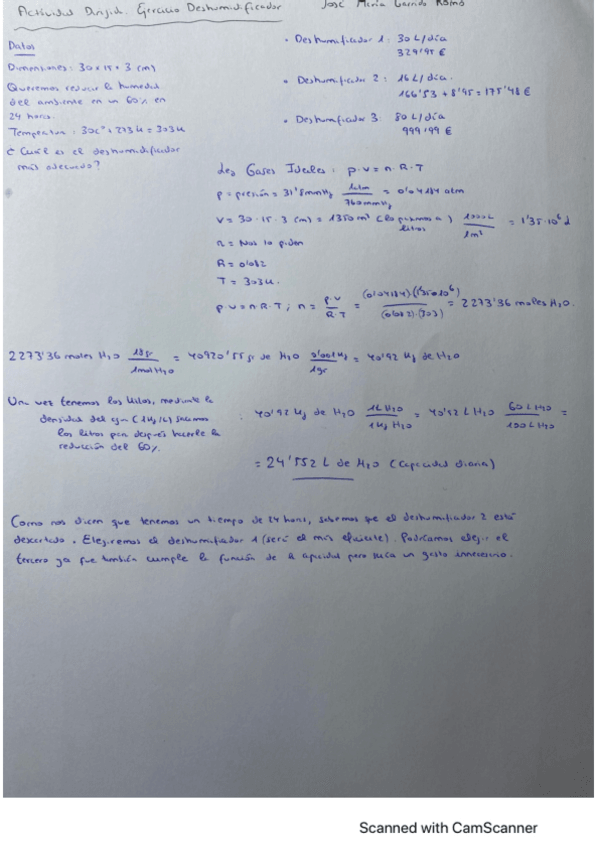 Actividad Dirigida. Ejercicio Deshumidificador José María Garrido
Datos
Dimensiones: 30 x 15 x 3 (m)
Queremos reducir la humedad
del ambiente en un 60% en
24 horas.
Temperatura: 30c° + 273K = 303K
¿ Cuál es el deshumidificador
más adecuado?
• Deshumidificador 1: 30 L/día
329'95 €
• Deshumidificador 2: 16 L/día.
166'53 + 8'95 = 175'48 €
• Deshumidificador 3: 80 L/día
999'99 €
Gases Ideales: p·v = n·R·T
p = presión = 31'8 mmHg 1atm/760mmHg = 0'04184 atm
V = 30·15·3 (m) = 1350 m³ (lo pasamos a litros) 1000L/1m³ = 1'35·10⁶ L
n = Nos lo piden
R = 0'082
T = 303K.
p·v = n·R·T; n = p·v/R·T = (0'04184)·(1'35·10⁶)/(0'082)·(303) = 2273'36 moles H₂O.
2273'36 moles H₂O 18gr/1mol H₂O = 40920'55 gr de H₂O 0'001Kg/1gr = 40'92 Kg de H₂O
Una vez tenemos los kilos, mediante la
densidad del agua (1Kg/L) sacamos
los litros para después hacerle la
reducción del 60%.
: 40'92 Kg de H₂O 1L H₂O/1Kg H₂O = 40'92 L H₂O 60 L H₂O/100 L H₂O =
= 24'552 L de H₂O (Capacidad diaria)
Como nos dicen que tenemos un tiempo de 24 horas, sabemos que el deshumidificador 2 está
descartado. Elegiremos el deshumidificador 1 (será el más eficiente). Podríamos elegir el
tercero ya que también cumple la función de la capacidad pero sería un gasto innecesario.
Scanned with CamScanner